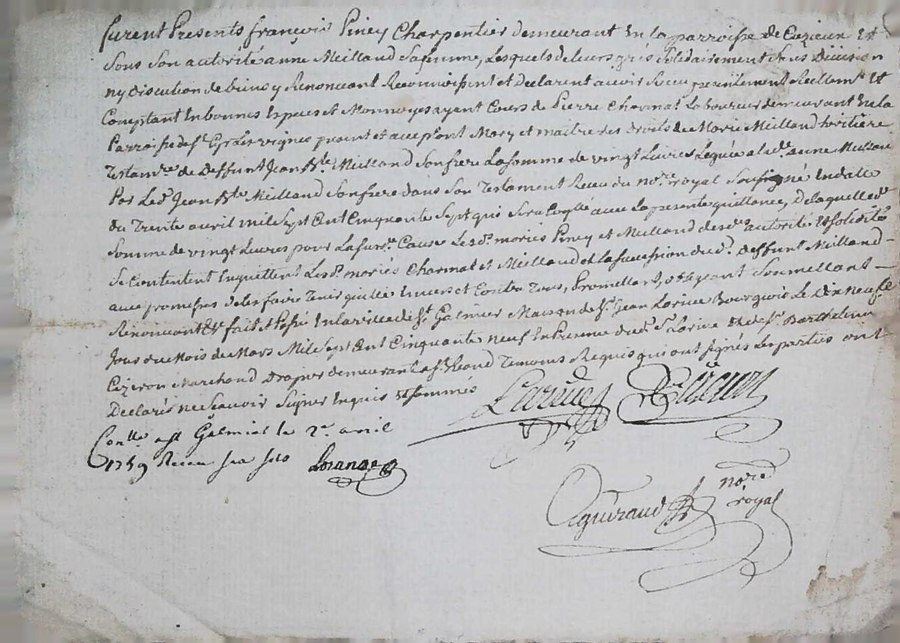 furent Presents françois Piney Charpentier demeurant En la parroisse de Cuzieu Et
Sous Son autorité anne Meilland Sa femme, Lesquels de leurs grés Solidairement Sans Division
ny discution de biens y Renoncant Reconnoissent et Declarent avoir Receu presentement Reellemt Et
Comptant En bonnes Especes et Monnoyes ayant Cours de Pierre Charmat Laboureur demeurant En la
Parroisse de St Cyr les vignes present et acceptant Mary et maitre des droits de Marie Meilland heritiere
Testamre de Deffunt Jean Bte Meilland Son frere La Somme de vingt Livres Leguée a lade anne Meilland
Par Led Jean Bte Meilland Son frere dans Son Testament Receu du nore royal Soussigné En datte
du Trente avril mil Sept Cent Cinquante Sept qui Sera avec la presente quittance, De laquelle de
Somme de vingt Livres pour La Cause Les ds mariés Piney et Meilland de autorité Et Solidité
Se Contentent En quittent Les ds mariés Charmat et Meilland et la Succession du d Deffunt Meilland
avec promesses de les faire Tenir quittes Envers et Contre Tous, Promettant, obligeant Soumettant
Renoncant &c fait et Passé En la ville de St Galmier Maison de Sr Jean Larive Bourgeois Le Dix neufe
Jour du Mois de Mars Mil Sept Cent Cinquante Neuf En Presence dud Sr Larive Et de Sr Barthelemy
Cizeron Marchand Drapier demeurant a St Temoins Requis qui ont Signés Les parties ont
Declarés ne Scavoir Signer Enquis Et Sommés
Larive Cizeron
Conlle a St Galmier le 2e avril
1759 Receu Six Sols Lorange
nore
royal